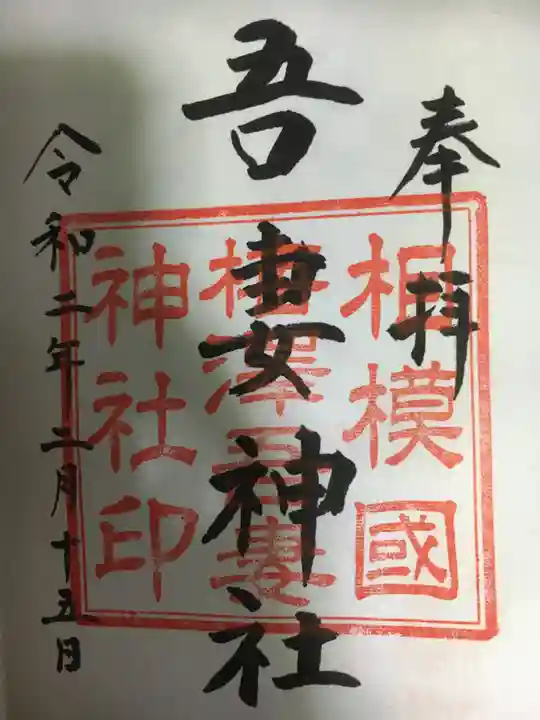 奉拝
吾妻神社
令和二年二月十五日
相模國
梅澤吾妻
神社印